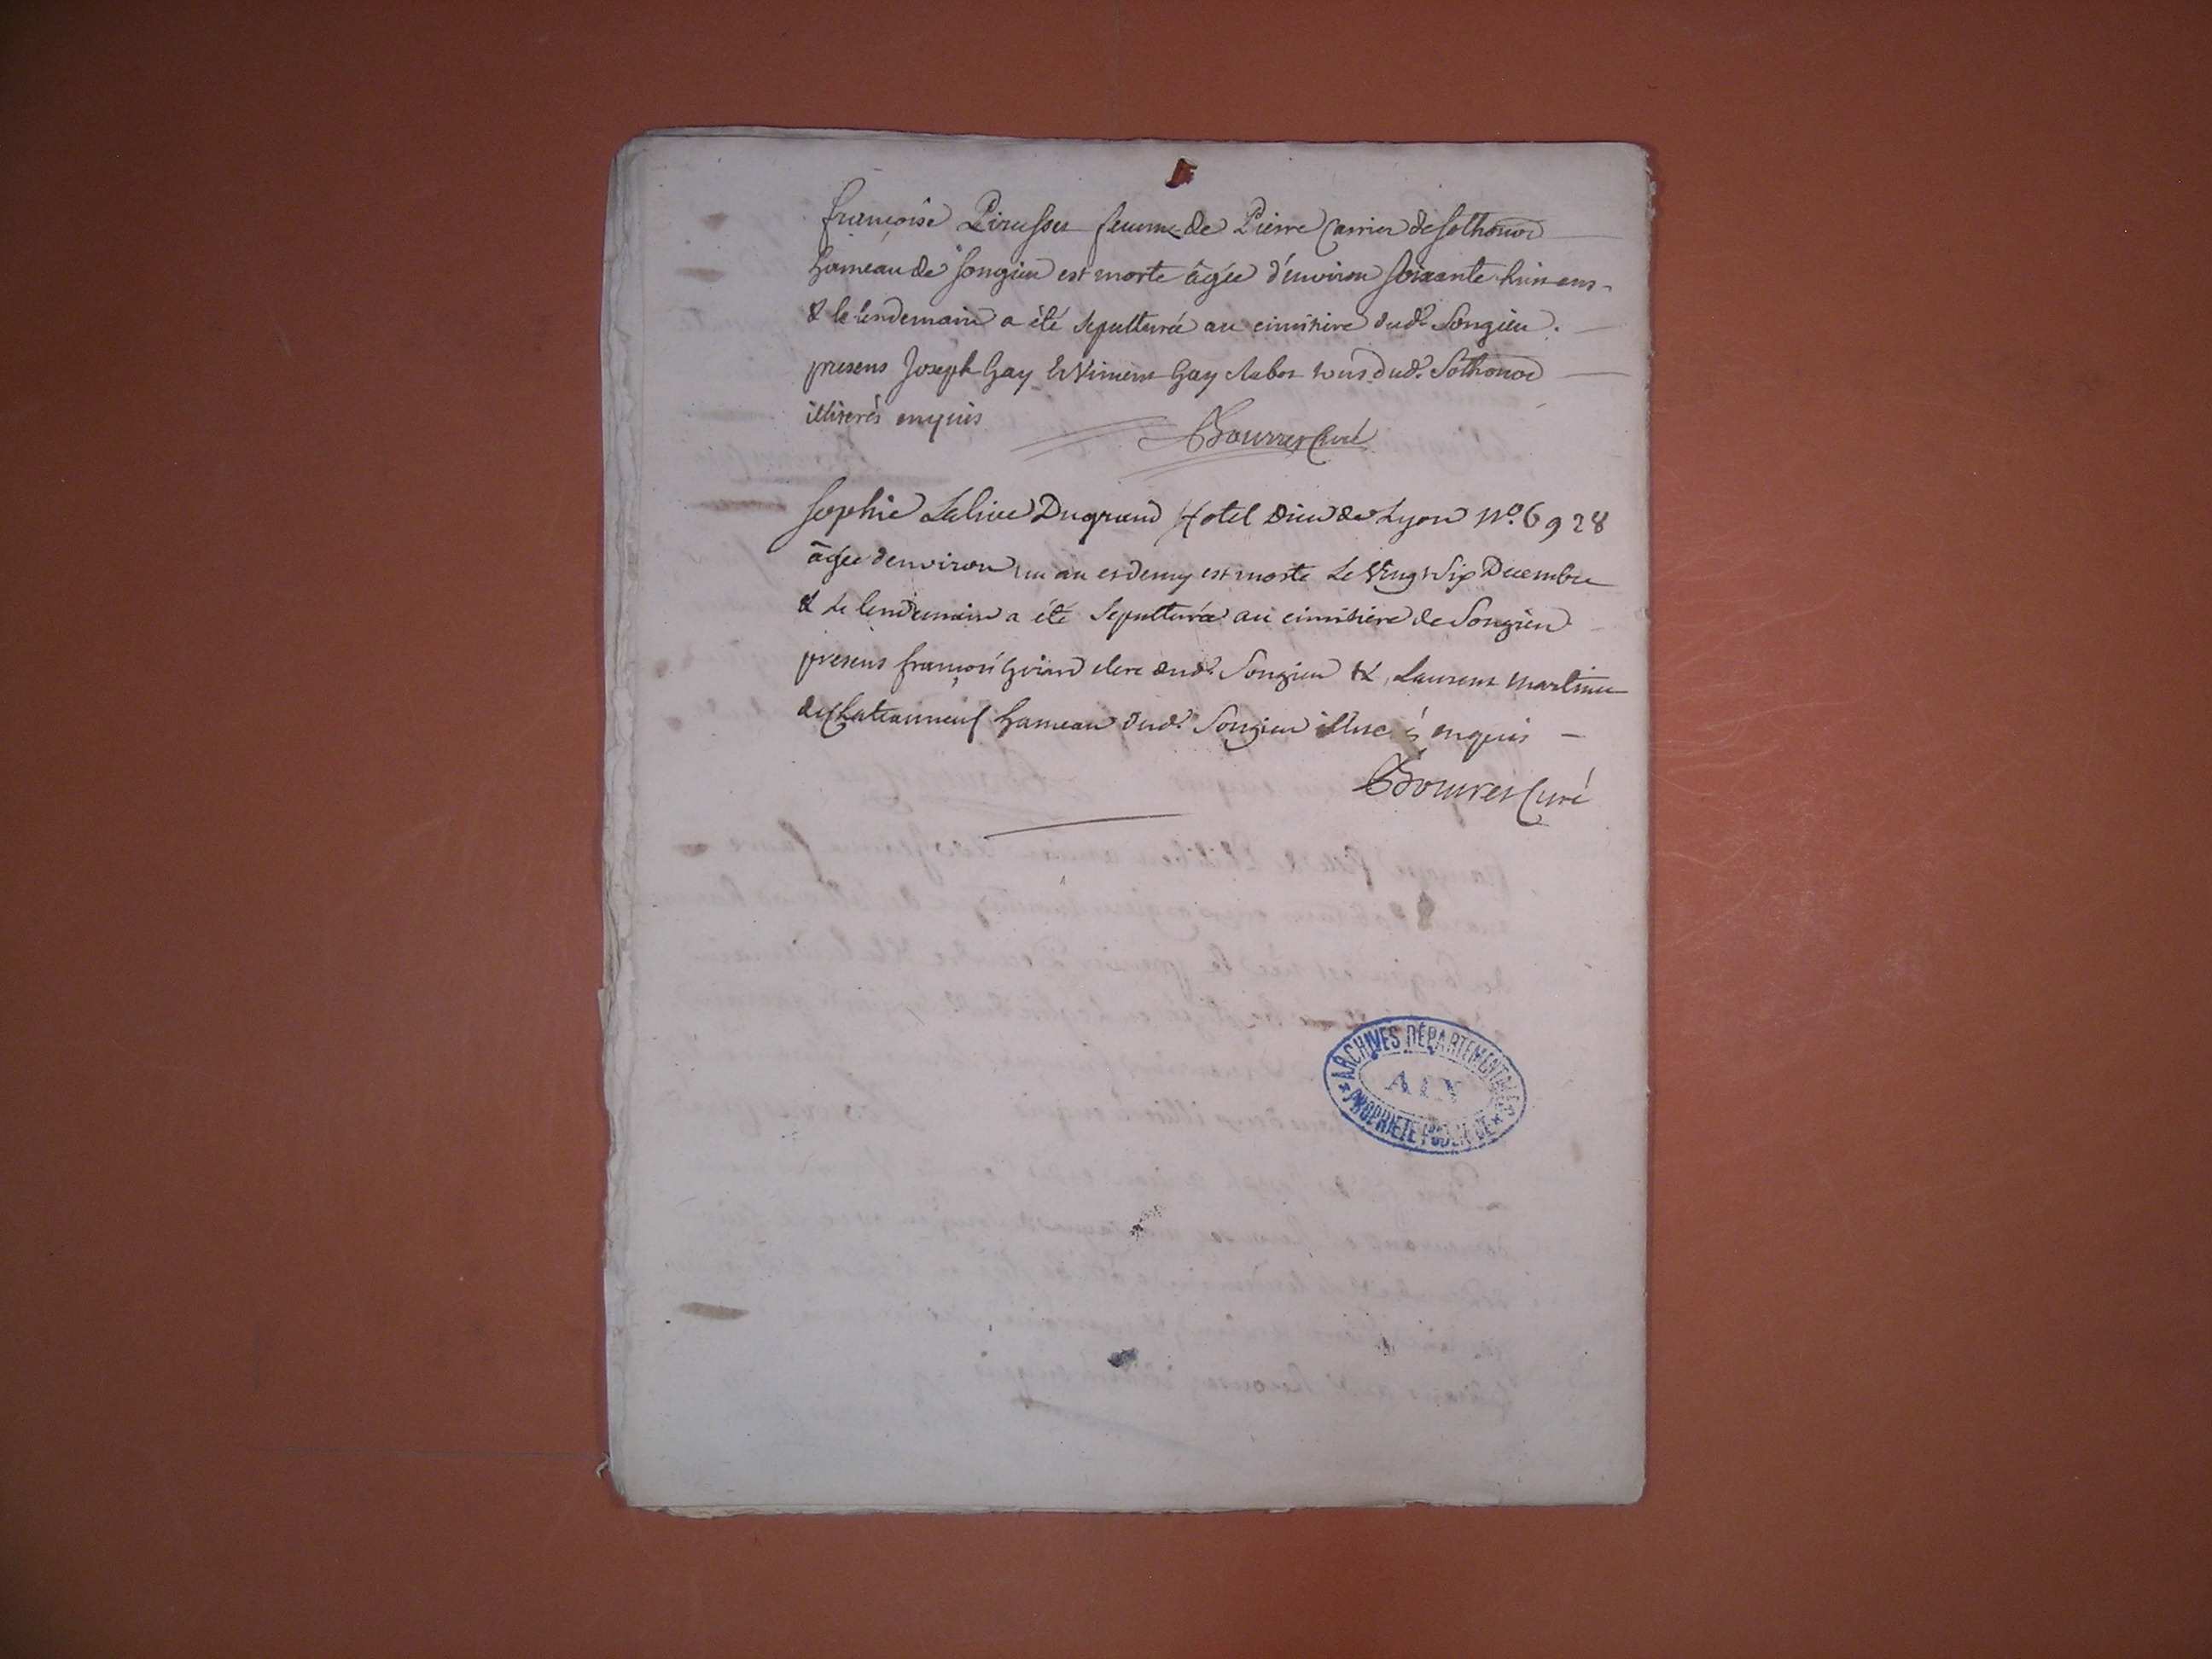 françoise Pirasset femme de Pierre Carrier de Sothonod
hameau de Songieu est morte âgée d'environ soixante huit ans
& le lendemain a été sepulturée au cimitiere dud. Songieu.
presens Joseph Gay & Viment Gay labor. tous dud. Sothonod
illiterés enquis Bouvret Curé
Sophie Dugrand Hotel Dieu de Lyon N°. 6928
âgée denviron un an et demy est morte Le Vingt Six Decembre
& Le lendemain a été Sepulturée au cimitiere de Songieu
presens françois clerc dud. Songieu & Laurent Martinie
de Chateauneuf hameau dud. Songieu enquis
Bouvret Curé
ARCHIVES DÉPARTEMENTALES
AIN
PROPRIÉTÉ PUBLIQUE